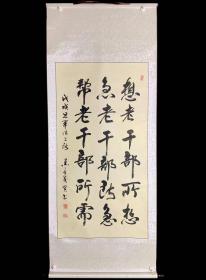 想老干部所想
急老干部所急
帮老干部所需
戊戌